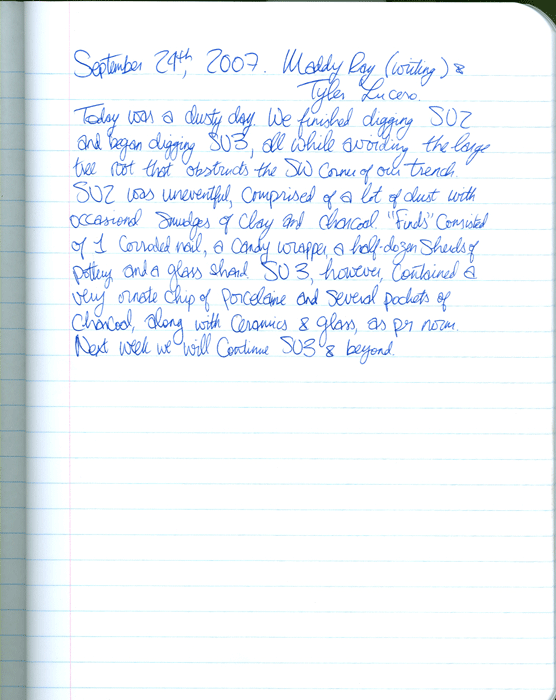 September 24th, 2007. Maddy Ray (writing) &
Tyler Lucero.
Today was a dusty day. We finished digging SU2
and began digging SU3, all while avoiding the large
tree root that obstructs the SW corner of our trench.
SU2 was uneventful, comprised of a lot of dust with
occasional smudges of clay and charcoal. "Finds" consisted
of 1 corroded nail, a candy wrapper, a half-dozen sherds of
pottery, and a glass shard. SU3, however, contained a
very ornate chip of porcelaine and several pockets of
charcoal, along with ceramics & glass, as per norm.
Next week we will continue SU3 & beyond.